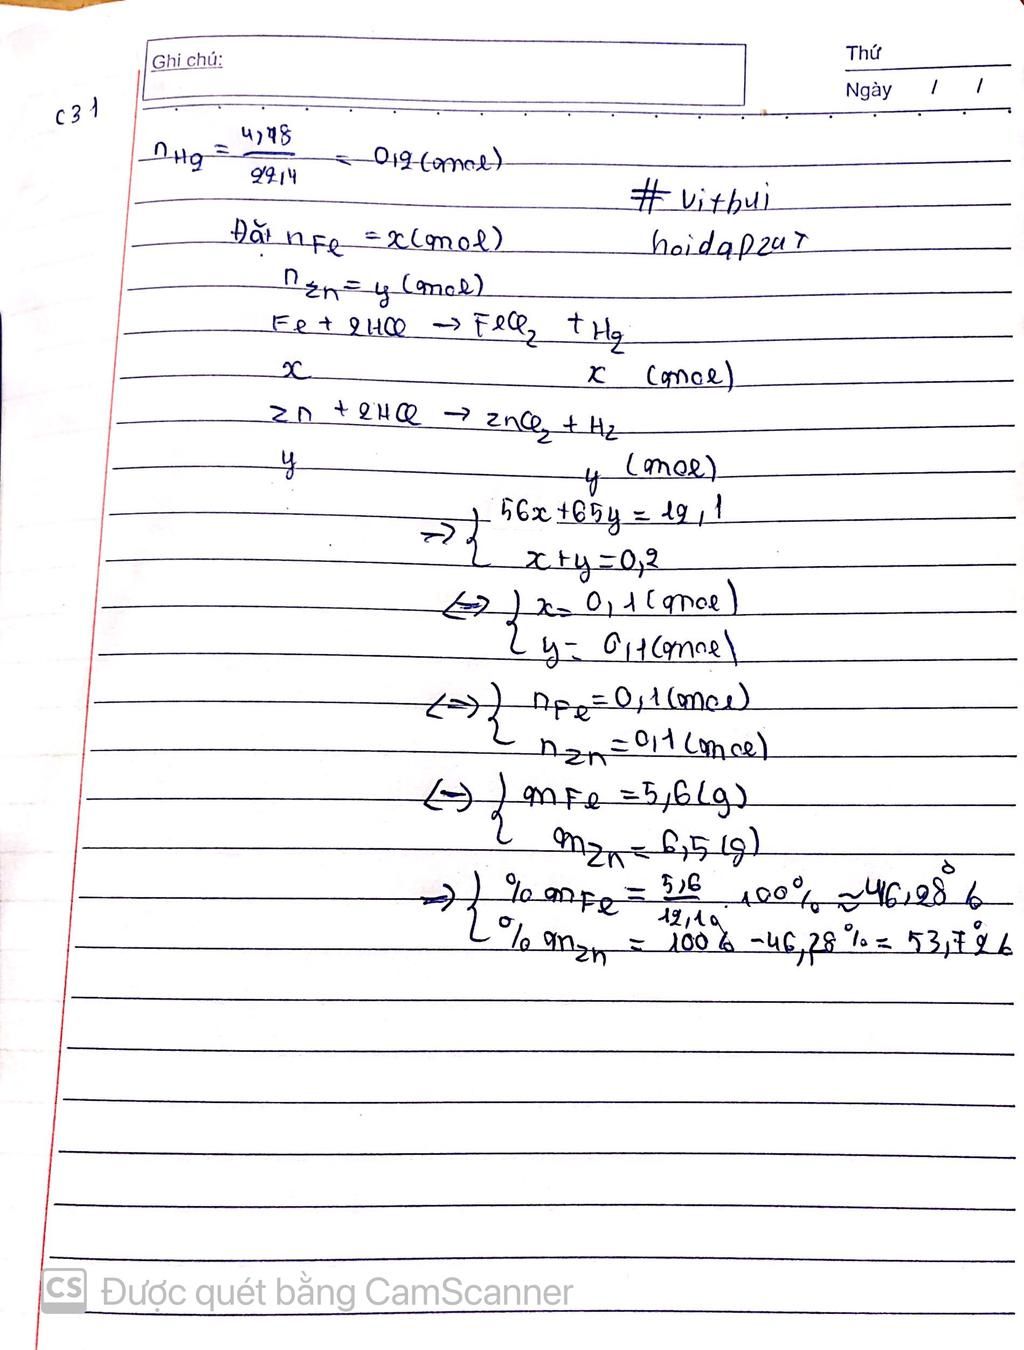 Ghi chú:
Thứ
Ngày / /
C31
nH2 = 4,48/22,4 = 0,2 (mol)
# vitbui
hoidap247
Đặt nFe = x (mol)
nZn = y (mol)
Fe + 2HCl → FeCl2 + H2
x x (mol)
Zn + 2HCl → ZnCl2 + H2
y y (mol)
=> { 56x + 65y = 12,1
x + y = 0,2
<=> { x = 0,1 (mol)
y = 0,1 (mol)
<=> { nFe = 0,1 (mol)
nZn = 0,1 (mol)
<=> { mFe = 5,6 (g)
mZn = 6,5 (g)
=> { % mFe = 5,6/12,1 . 100% ≈ 46,28%
% mZn = 100% - 46,28% = 53,72%
CS Được quét bằng CamScanner